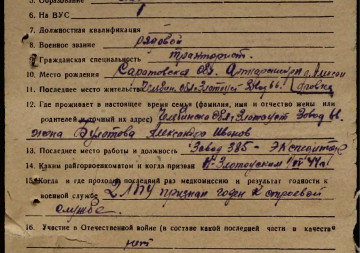 5. Образование
6. На ВУС
7. Должностная квалификация
8. Военное звание рядовой
9. Гражданская специальность тракторист.
10. Место рождения Саратовская обл. Аткарский р.
11. Последнее место жительства Челябин. обл. г. Златоуст Завод 66.
12. Где проживает в настоящее время семья (фамилия, имя и отчество жены или
родителей и точный их адрес) Челябинск обл Златоуст Завод 66.
жена Булотова Александра
13. Последнее место работы и должность Завод 385 -
14. Каким райгорвоенкоматом и когда призван Златоустским
15. Когда и где проходил последний раз медкомиссию и результат годности к
военной службе признан годен к строевой
службе.
16. Участие в Отечественной войне (в составе какой последней части в качестве
нет